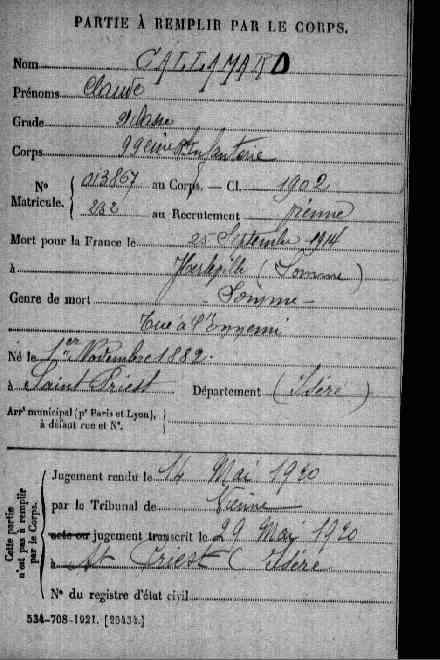 PARTIE À REMPLIR PAR LE CORPS.
Nom CALLAMARD
Prénoms Claude
Grade 2e classe
Corps 99eme d'Infanterie
Nº Matricule. { 013867 au Corps. — Cl. 1902
232 au Recrutement Vienne
Mort pour la France le 25 Septembre 1914
à Herleville (Somme)
Genre de mort - Somme -
Tué à l'Ennemi
Né le 1er Novembre 1882.
à Saint Priest Département (Isère)
Arrt municipal (pr Paris et Lyon), à défaut rue et Nº. }
Cette partie n'est pas à remplir par le Corps.
Jugement rendu le 14 Mai 1920
par le Tribunal de Vienne
acte ou jugement transcrit le 29 Mai 1920
à St Priest (Isère
Nº du registre d'état civil
534-708-1921. [25434.]